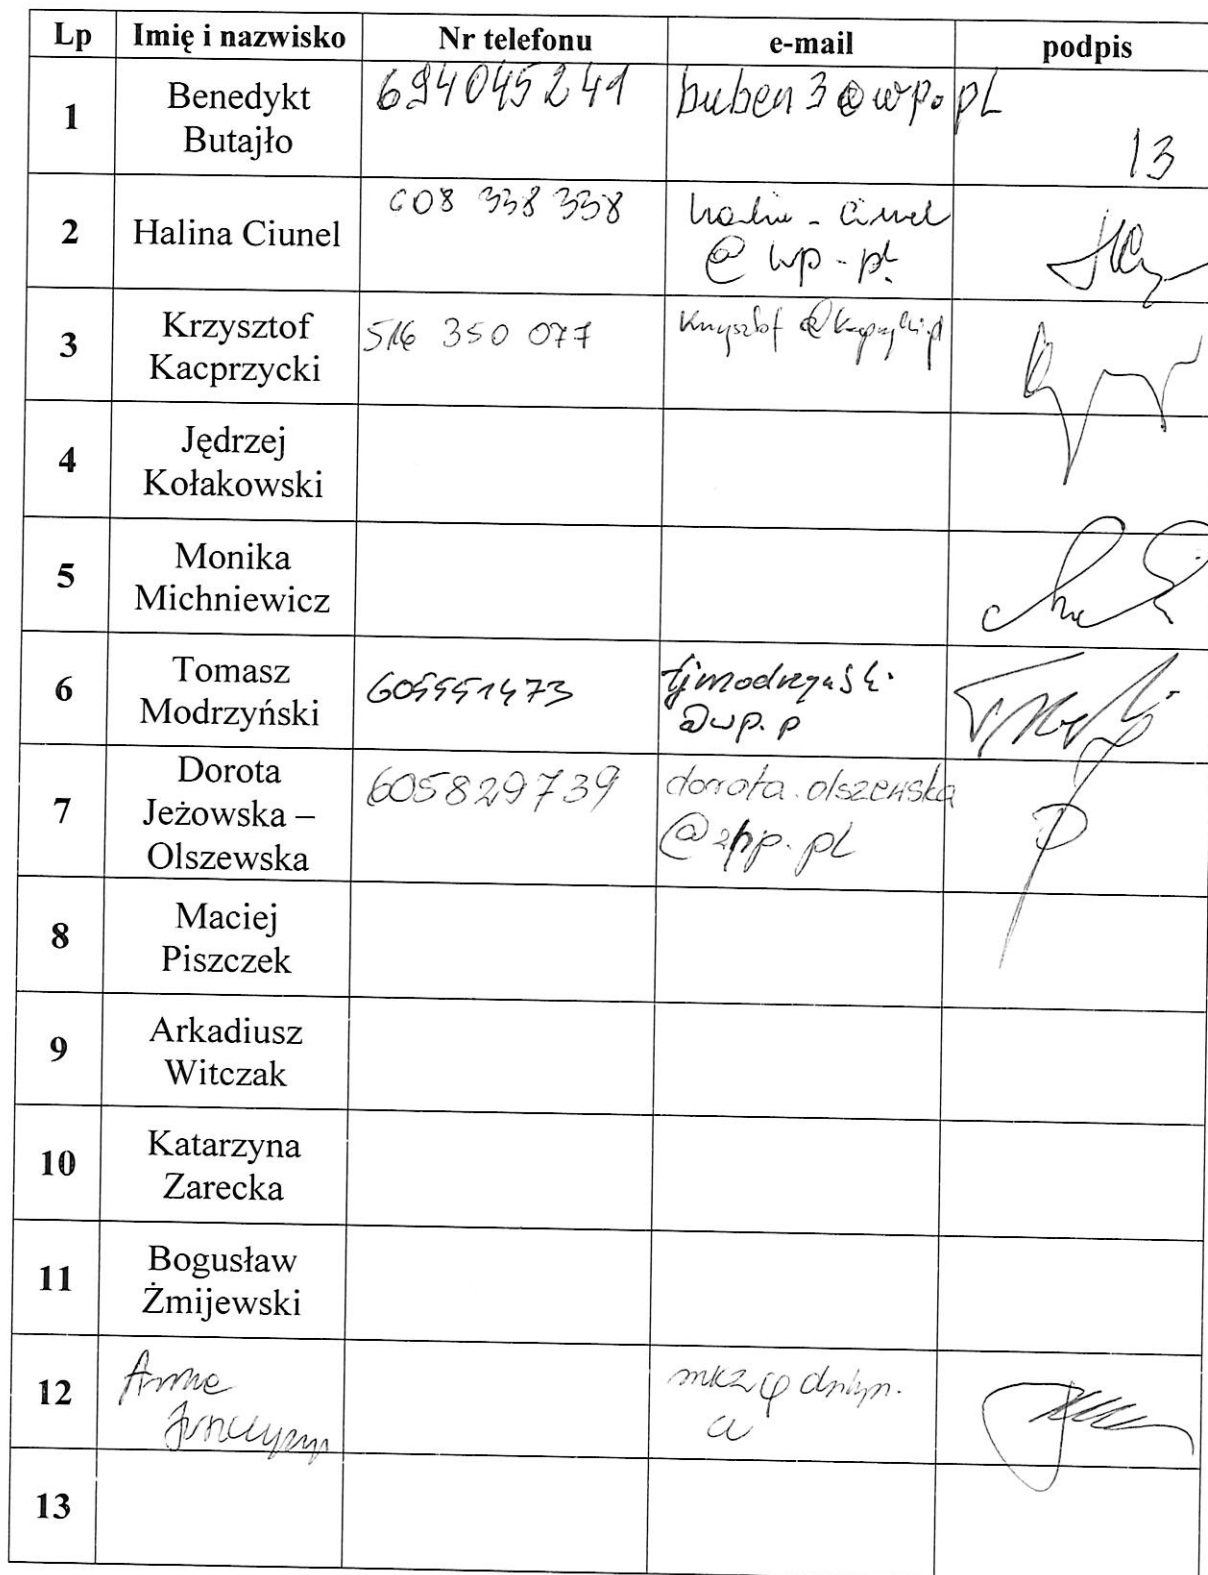 Lp Imię i nazwisko Nr telefonu e-mail podpis
1 Benedykt Butajło 694045241 buben3@wp.pl
13
2 Halina Ciunel 608 338 338 halina-ciunel
@wp.pl
3 Krzysztof Kacprzycki 516 350 077
4 Jędrzej Kołakowski
5 Monika Michniewicz
6 Tomasz Modrzyński
@wp.p
7 Dorota Jeżowska – Olszewska 605829739 dorota.olszewska
8 Maciej Piszczek
9 Arkadiusz Witczak
10 Katarzyna Zarecka
11 Bogusław Żmijewski
12
13